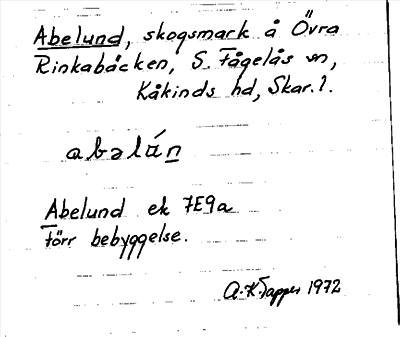 Abelund, skogsmark å Övra
Rinkabäcken, S. Fågelås sn,
Kåkinds hd, Skar. l.
abəlún
Abelund ek 7E9a
förr bebyggelse.
A.K. Tapper 1972